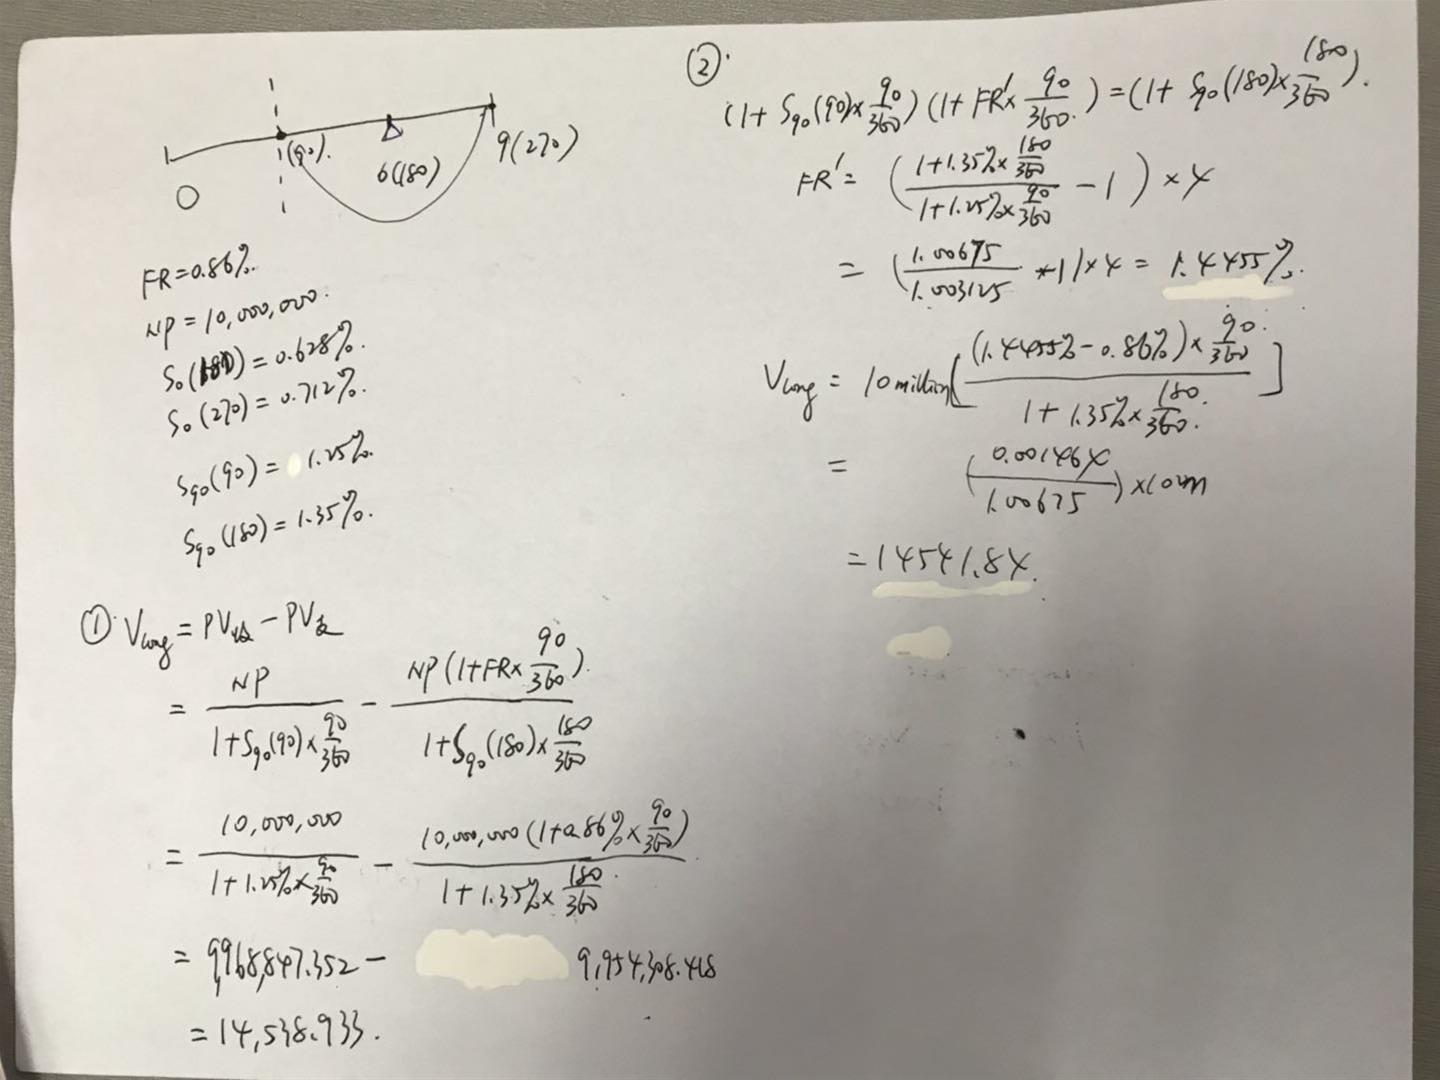 0
(90).
6(180)
9(270)
FR=0.86%.
NP=10,000,000.
S₀(180)=0.628%.
S₀(270)=0.712%.
S₉₀(90)= 1.25%.
S₉₀(180)=1.35%.
① V_long = PV收 - PV支
= NP/(1+S₉₀(90)×90/360) - NP(1+FR×90/360)/(1+S₉₀(180)×180/360).
= 10,000,000/(1+1.25%×90/360) - 10,000,000(1+0.86%×90/360)/(1+1.35%×180/360).
= 9,968,847.352 - 9,954,308.418
= 14,538.933.
②.
(1+S₉₀(90)×90/360)(1+FR'×90/360.)=(1+S₉₀(180)×180/360).
FR' = ((1+1.35%×180/360)/(1+1.25%×90/360) - 1)×4
= (1.00675/1.003125 - 1)×4 = 1.4455%.
V_long = 10million[(1.4455%-0.86%)×90/360./(1+1.35%×180/360.)]
= (0.001464/1.00675)×10m
=14541.84.